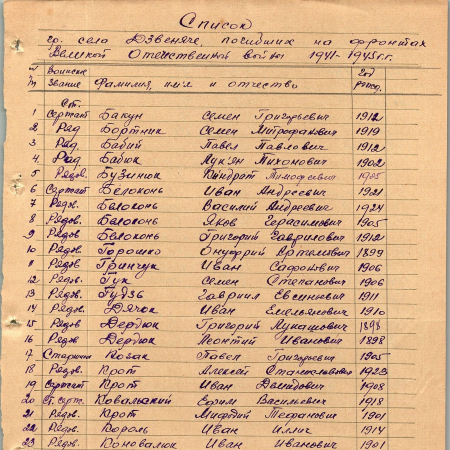 Список
гр. села Дзвеняче, погибших на фронтах
Великой Отечественной войны 1941-1945 г.г.
№ Воинское Год
п/п Звание Фамилия, имя и отчество рожд.
Ст.
1 Сержант Бакун Семен Григорьевич 1912
2 Ряд. Бортник Семен Митрофанович 1919
3 Ряд. Бабий Павел Павлович 1912
4 Ряд. Бабюк Лук'ян Тихонович 1902
5 Рядов. Бузинюк Кіндрат Тимофеевич 1905
6 Сержант Белоконь Иван Андреевич 1921
7 Рядов. Белоконь Василий Андреевич 1924
8 Рядов. Белоконь Яков Герасимович 1905
9 Рядов Белоконь Григорий Гаврилович 1912
10 Рядов Горошко Онуфрий Артемович 1899
11 Рядов. Гринчук Иван Сафонович 1906
12 Рядов. Гук Семен Степанович 1906
13 Рядов. Гудзь Гавриил Евсеньевич 1911
14 Рядов. Дячок Иван Емельянович 1910
15 Рядов Дердюк Григорий Лукашович 1898
16 Рядов Дердюк Леонтий Иванович 1898
17 Старшина Козак Павел Григорьевич 1905
18 Рядов. Крот Алексей Станиславович 1923
19 Сержант Крот Иван Демидович 1908
20 Ст. серж. Ковальский Ефим Васильевич 1918
21 Рядов. Крот Мифодий Стефанович 1901
22 Рядов. Король Иван Иллич 1914
23 Рядов. Коновалюк Иван Иванович 1901